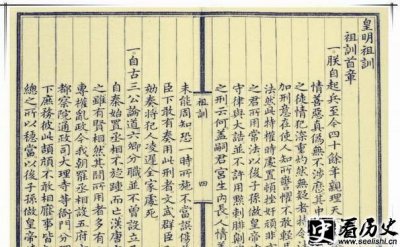 皇明祖訓
祖訓首章
一朕自起兵至今四十餘年親理天
情善惡真偽無不涉歷其中
之徒情犯深重灼然無疑者特
加刑意在使人知所警懼不敢輕
法然此特權時處置頓挫奸頑非
之君所用常法以後子孫做皇帝
守律與大誥並不許用黥刺剕劓
之刑云何蓋嗣君宮生內長人情
祖訓
四
未能周知恐一時所施不當誤傷
臣下敢有奏用此刑者文武群臣
劾奏將犯人凌遲全家處死
一自古三公論道六卿分職並不曾設立
自秦始置丞相不旋踵而亡漢唐
之雖有賢相然其間所用者多有
專權亂政今我朝罷丞相設五府
都察院通政司大理寺等衙門分
下庶務彼此頡頏不敢相壓事皆
總之所以穩當以後子孫做皇帝
看历史
www.seelishi.com